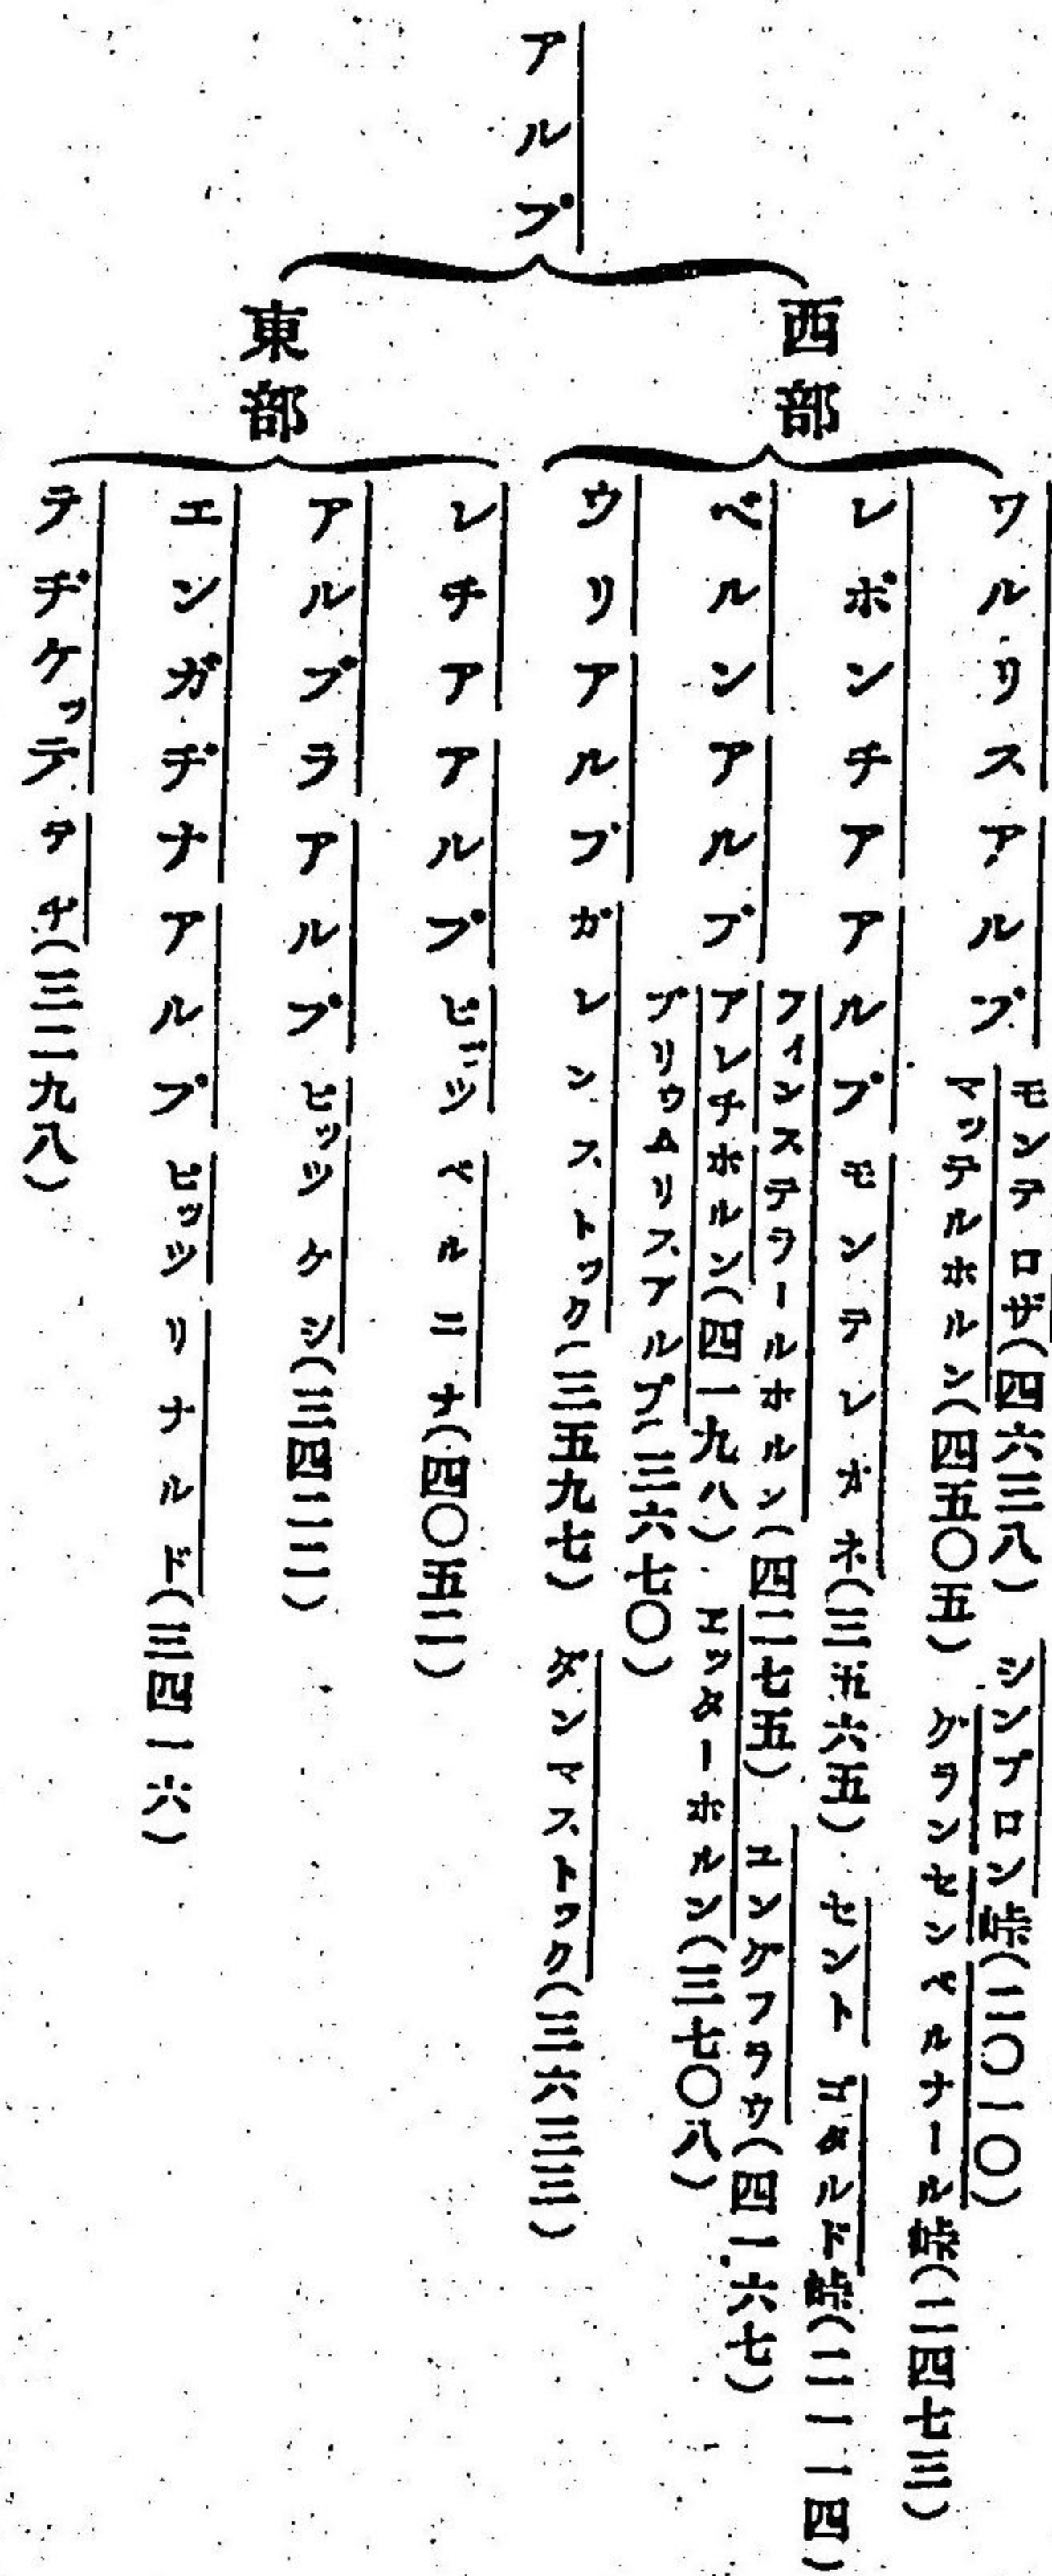 アルプ
西部
ワルリスアルプ
モンテロザ(四六三八) シンプロン峠(二〇一〇)
マッテルホルン(四五〇五) グランセンベルナール峠(二四七三)
レポンチアアルプ モンテレガネ(三五六五) セントゴタルド峠(二一一四)
ベルンアルプ
フィンステラールホルン(四二七五) ユングフラウ(四一六七)
アレチホルン(四一九八) エッターホルン(三七〇八)
ブリウムリスアルプ(三六七〇)
ウリアルプガレンストック(三五九七) ダンマストック(三六三三)
東部
レチアアルプ ピッツベルニナ(四〇五二)
アルブラアルプ ピッツケシ(三四二二)
エンガヂナアルプ ピッツリナルド(三四一六)
テヂケッテ(三二九八)